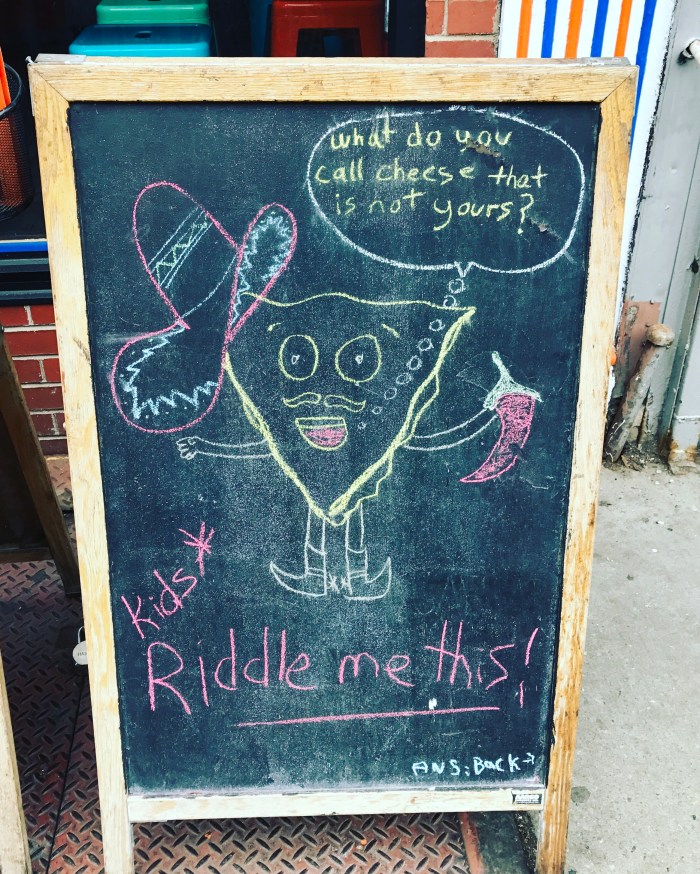 what do you
call cheese that
is not yours?
Kids*
Riddle me this!
ANS: BacK→